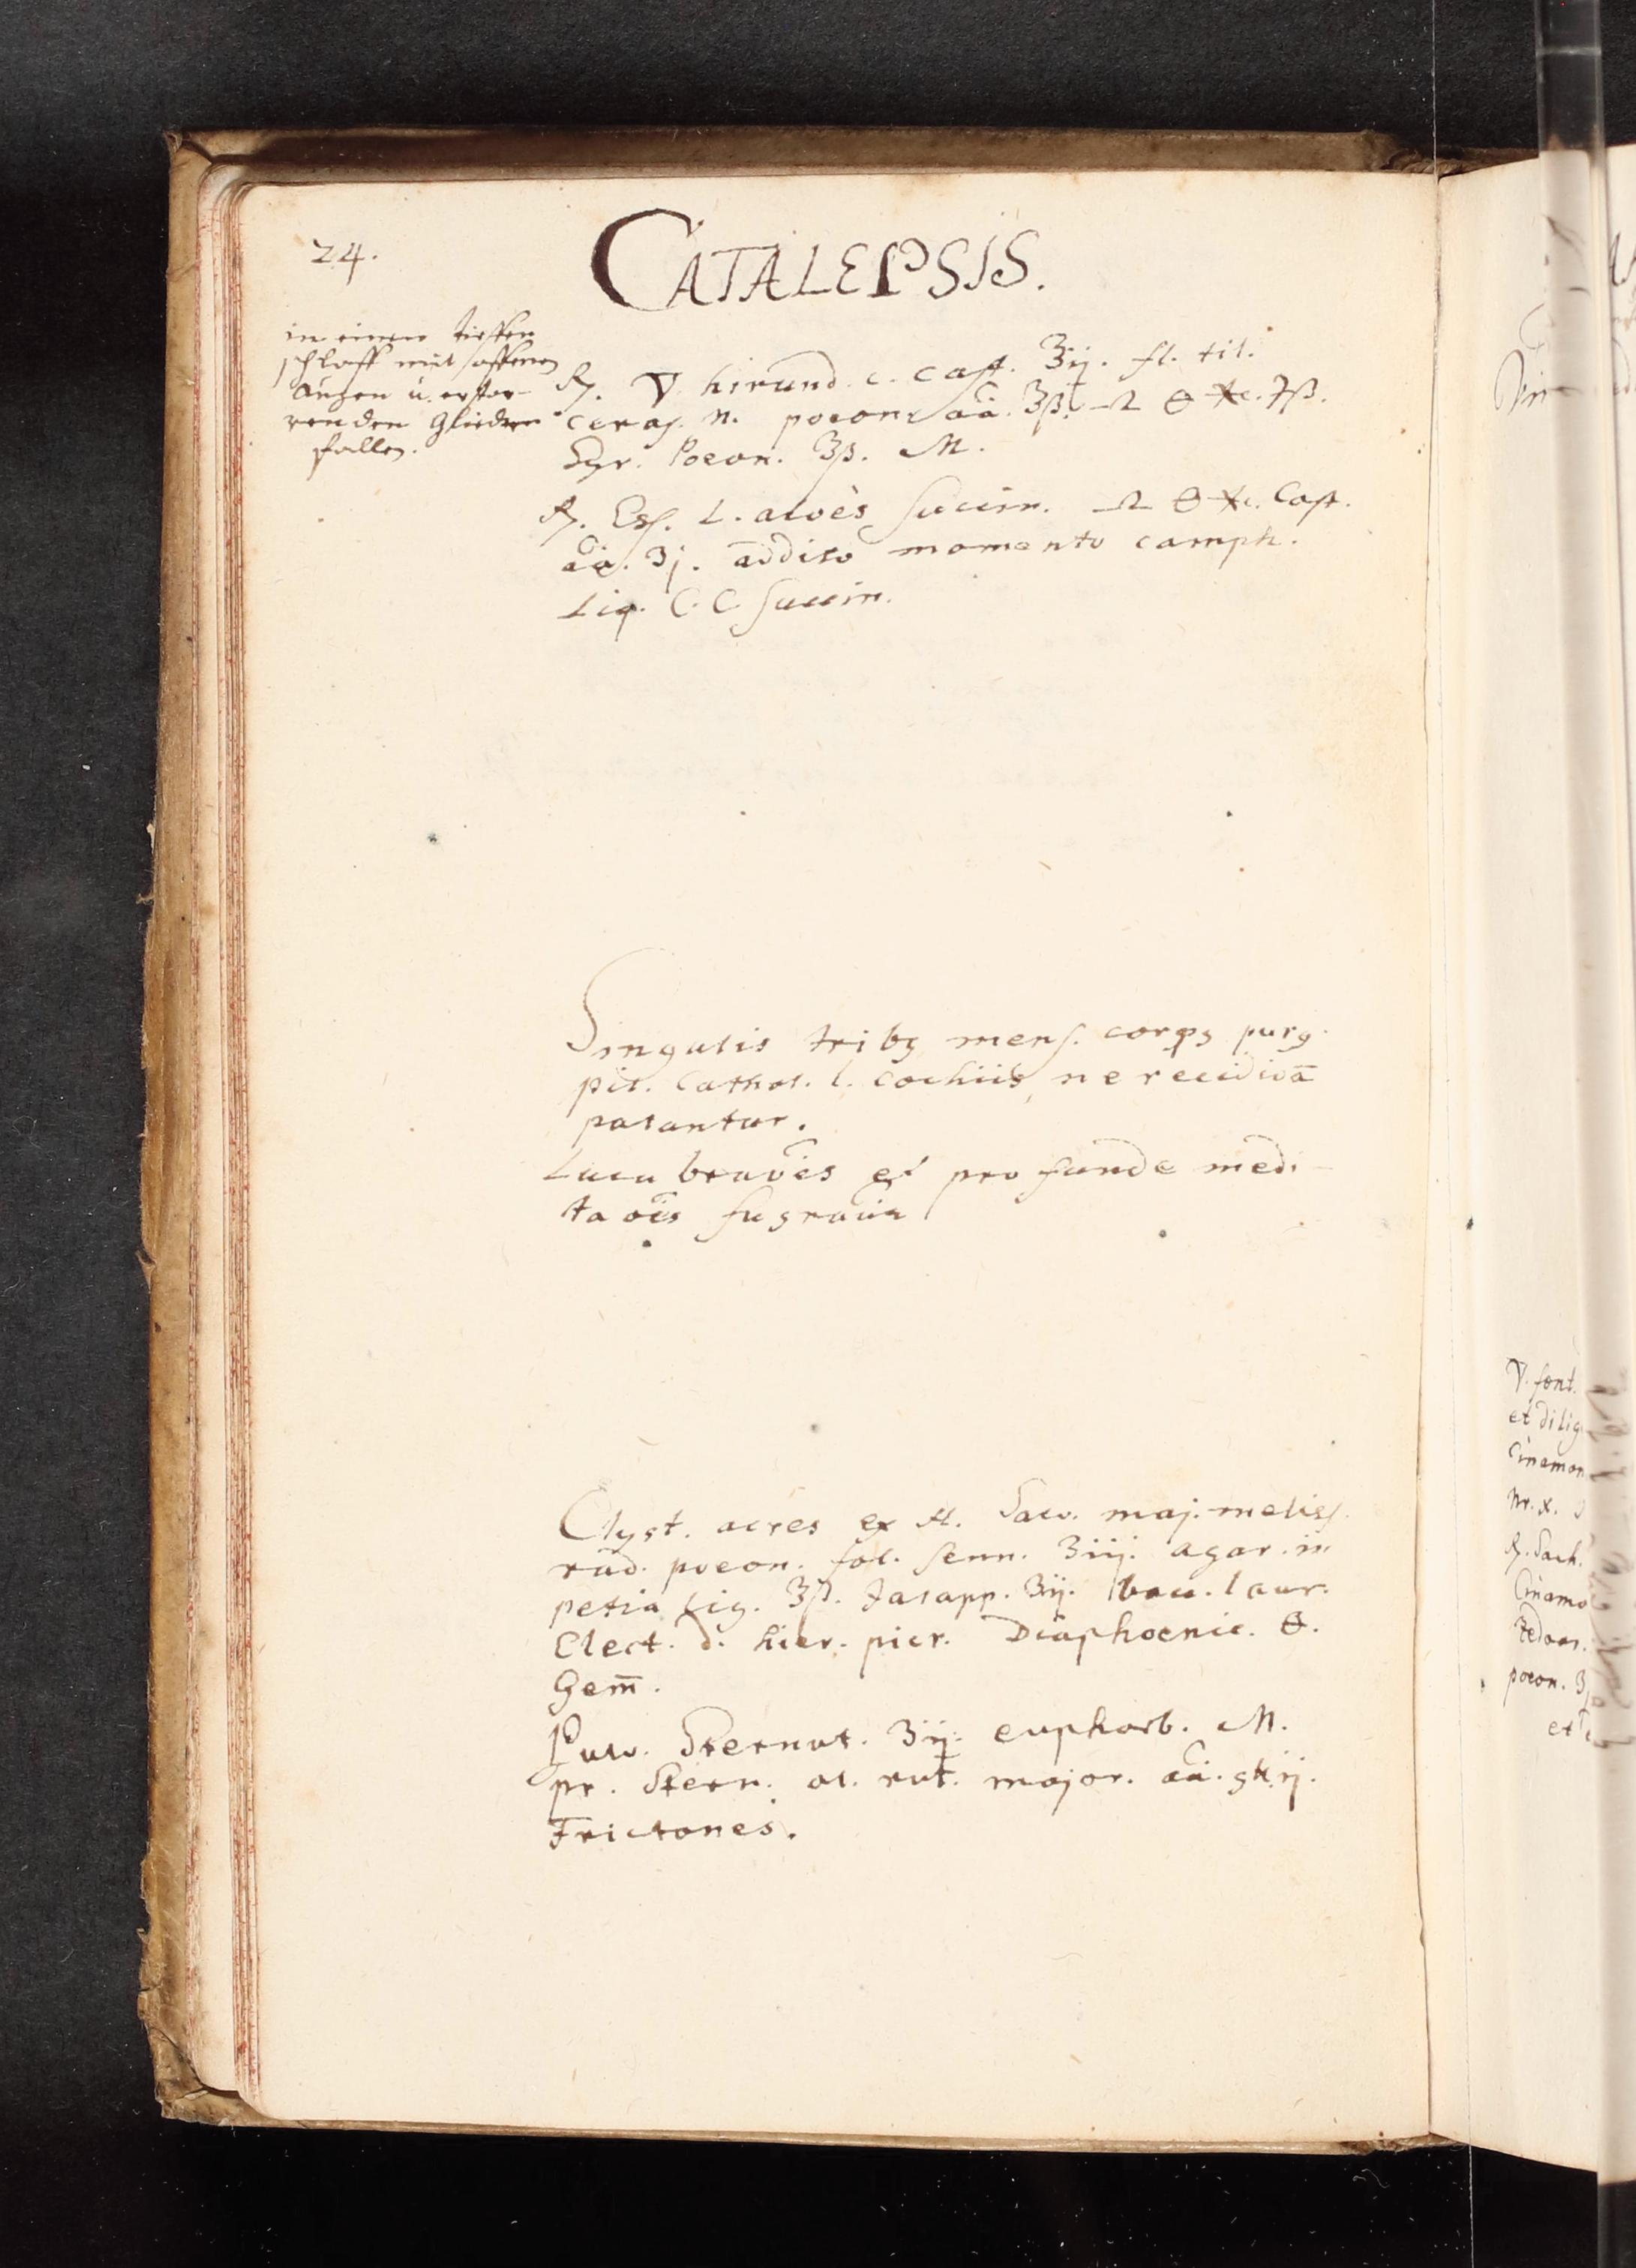 24.
CATALEPSIS.
in einen tieffen
schlaff mit offenen
Augen u. erstar-
renden Gliedern
fallen.
℞. 🜄 hirund. c. Cast. ℥ij. fl. til.
ceras. n. poeon. aa. ℥ß.
Syr. Poeon. ℥ß. M.
℞. Ess. L. aloes succin. Cast.
aa. ʒj. addito momento camph.
Liq. C. C. succin.
Singulis tribg mens. corpg purg.
pil. Cathol. l. Cochiis, ne recidivā
patantur.
Lucubraōēs et profunde medi-
taōēs
Clyst. acres ex H. Salv. maj. meliss.
rad. poeon. fol. senn. ʒiij. agar. in
petia lig. ʒß. Jalapp. ʒij. bacc. laur.
Elect. d. hier. picr. Diaphoenic. 🜔.
Gem̄.
Pulv. Sternut. ʒij. euphorb. M.
pr. Stern. ol. rut. major. aa. gtt. ij.
Frictones.
🜄. font.
et dilig
Cinamon
nr. x.
℞. Sach.
Cinamo
Zedoar.
poeon. ʒ
et